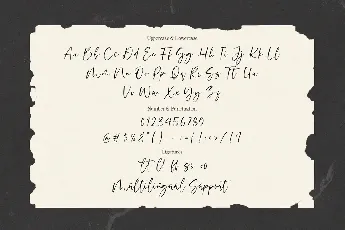 Uppercase & Lowercase
Aa Bb Cc Dd Ee Ff Gg Hh Ii Jj Kk Ll
Mm Nn Oo Pp Qq Rr Ss Tt Uu
Vv Ww Xx Yy Zz
Number & Punctuation
0123456789
Ligatures
Multilingual Support